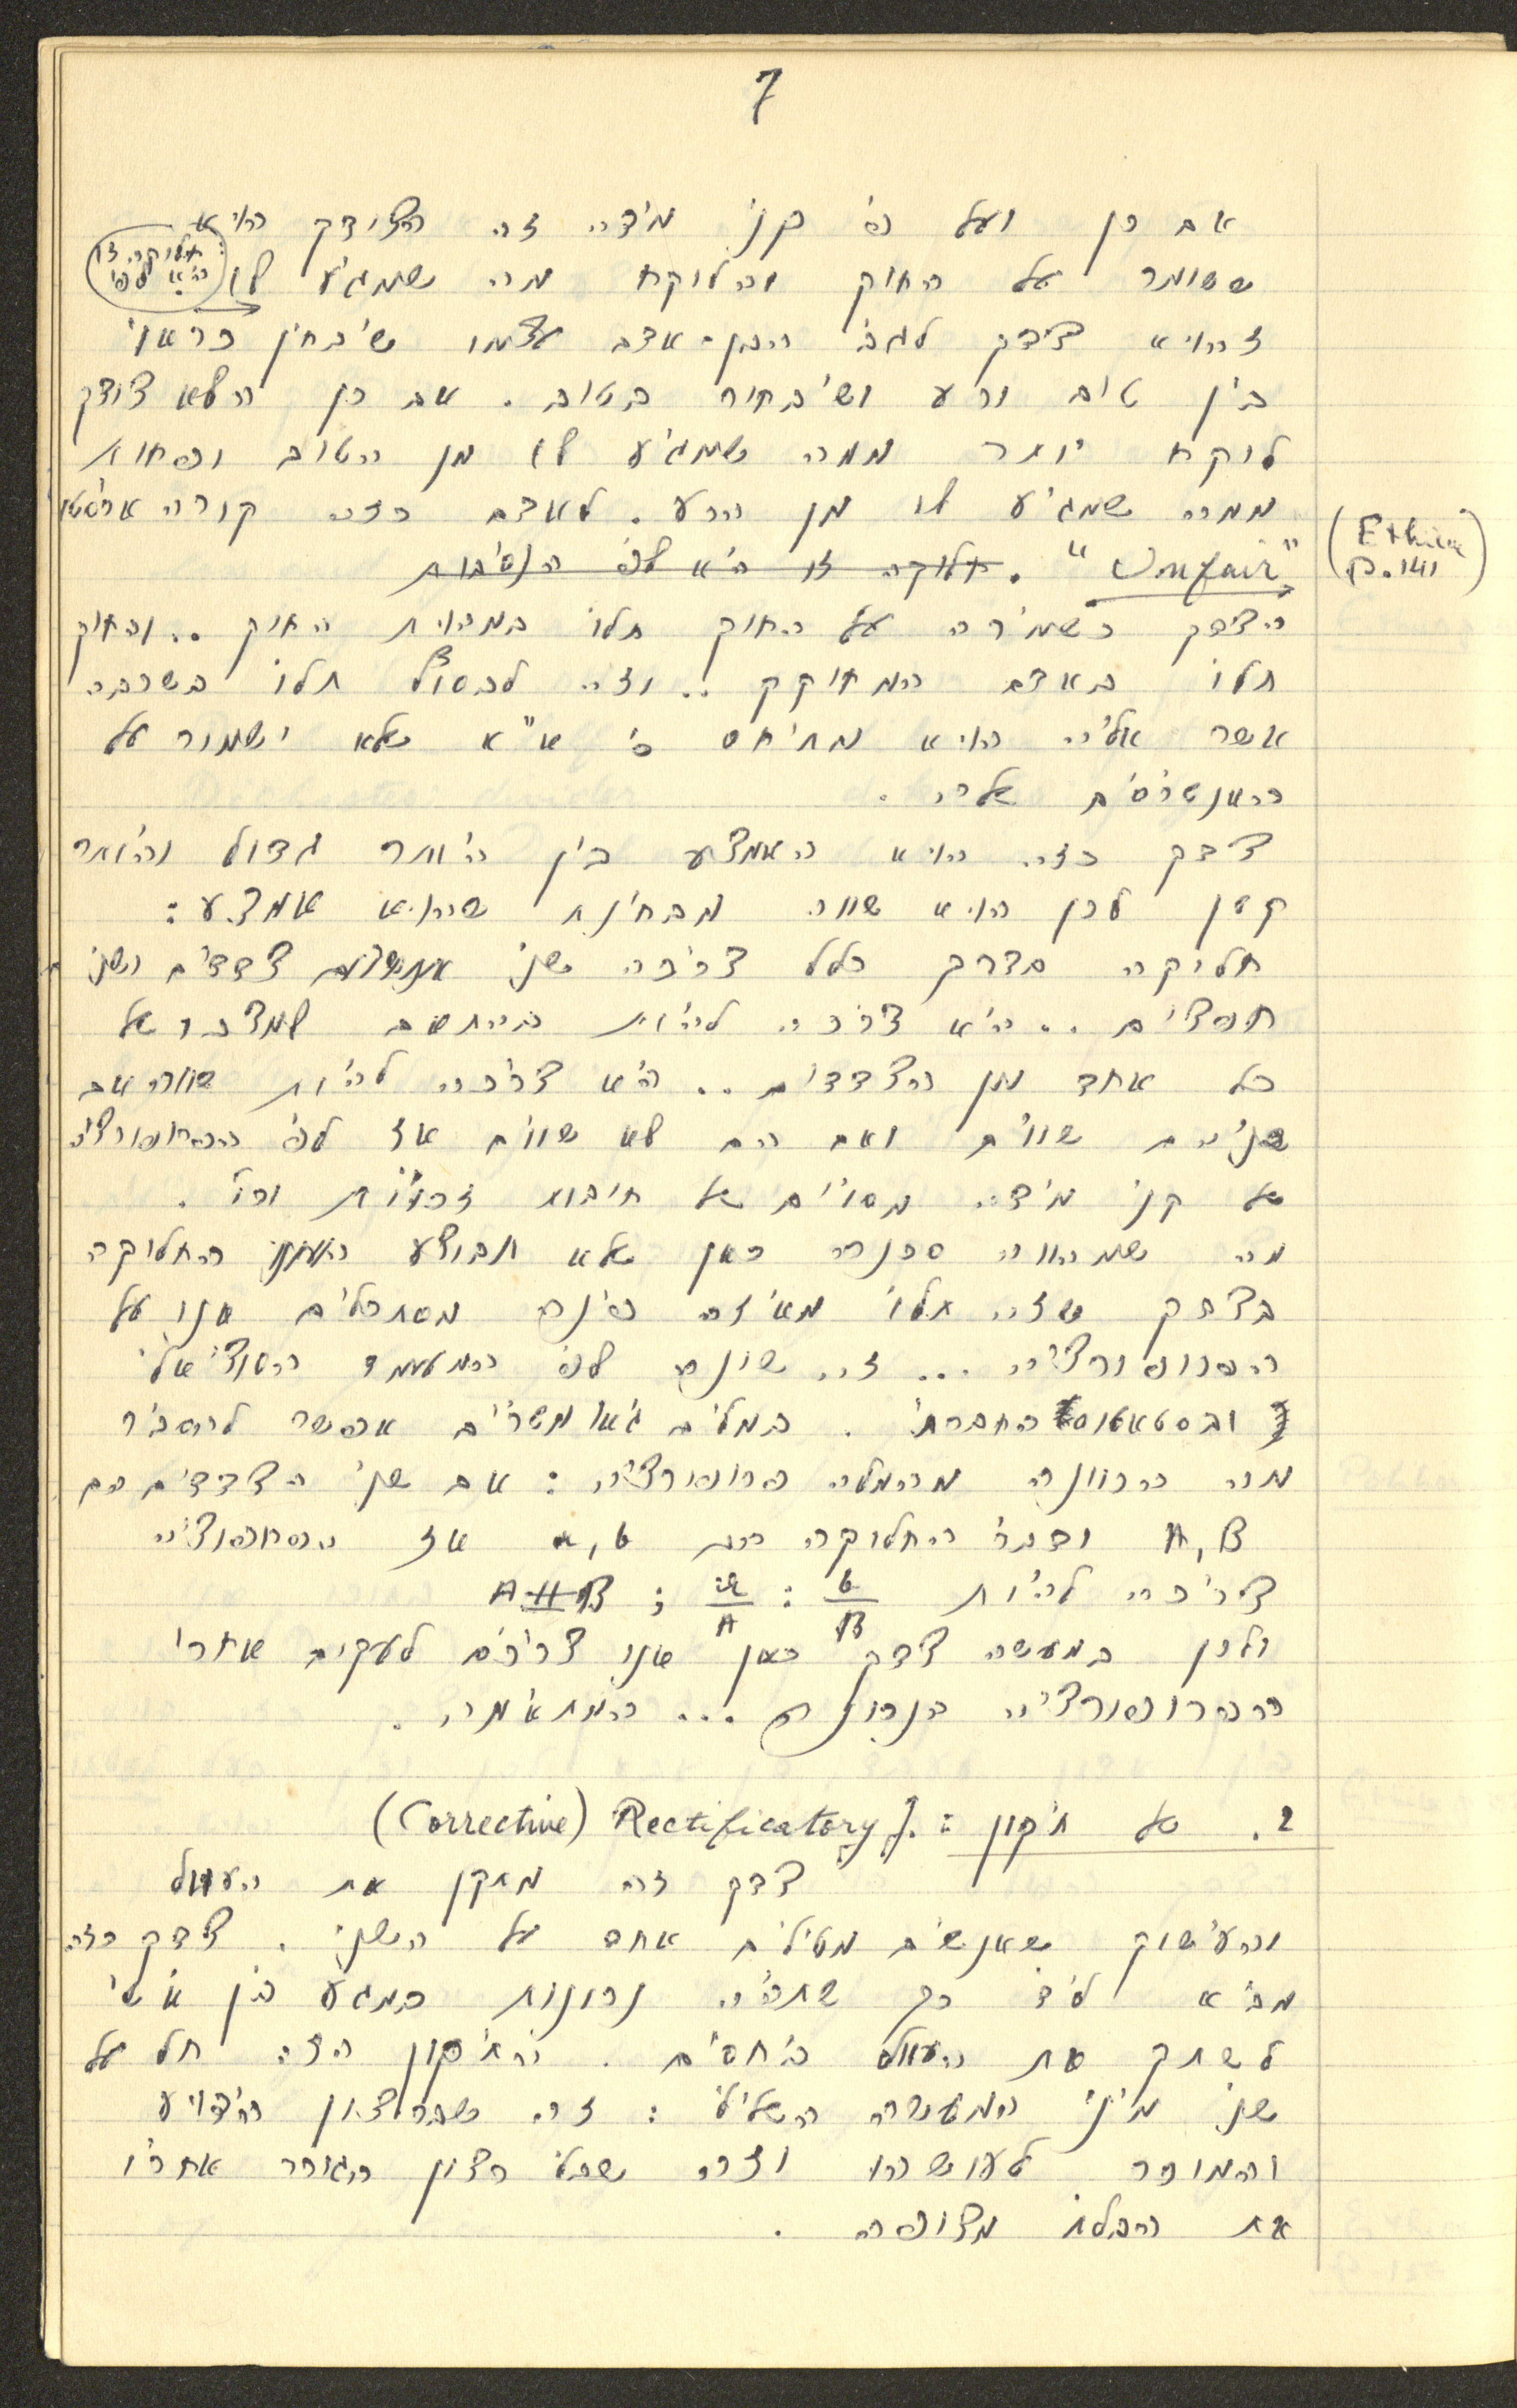 7
אם כן ועל פי קני מידה זה הצודק הוא
ששומר על החוק והלוקח מה שמגיע לו (חלוקה זו היא לפי)
זהוא צדק לגבי הבן-אדם עצמו שיבחין כראוי
בין טוב ורע ושיבחור בטוב. אם כן הלא צודק
לוקח יותר ממה שמגיע לו מן הטוב ופחות
ממה שמגיע לו מן הרע. לאדם כזה קורה אריסטו
"Unfair". חלוקה זו היא לפי הנסיבות
(Ethics p. 141)
הצדק כשמירה על החוק תלוי במהות החוק .. והחוק
תלוי באדם המחוקק .. וזה תלוי בשכבה
אשר אליה הוא מתיחס כי א"א שלא ישמור על
האנטרסים שלה.
צדק כזה הוא האמצע בין היותר גדול והיותר
קטן לכן הוא שווה מבחינת שהוא אמצע:
חלוקה בדרך כלל צריכה שני צדדים ושני
חפצים .. היא צריכה להיות בהתאם למצבו של
כל אחד מן הצדדים .. היא צריכה להיות שווה אם
שניהם שווים ואם הם לא שווים אז לפי הפרופורציה
של קני מידה מסויים של חובות זכויות וכו'.
מה שמהווה סכנה כאן שלא תבוצע החלוקה
בצדק שזה תלוי מאיזה פינה מסתכלים אנו על
הפרופורציה ... זה שונה לפי המעמד הסוציאלי
ובסטאטוס החברתי. במלים גיאומטריים אפשר להסביר
מה הכוונה מהמלה פרופורציה: אם שני הצדדים הם
A, B ודברי החלוקה הם a, b אז הפרופורציה
צריכה להיות b/B : a/A ; A#B
ולכן במעשה צדק כאן אנו צריכים לעקוב אחרי
הפרופורציה הנכונה ... המתאימה.
2. של תקון: (Corrective) Rectificatory J.
צדק זה מתקן את העוול
והעישוק שאנשים מטילים אחד על השני. צדק כזה
מביא לידי כך שתהיה נכונות במגע בין אישי
לשתק את העוול ביחסים. והתיקון הזה חל על
שני מיני המעשה השלילי: זה שברצון הידוע
והמוכר לעושהו וזה שבלי רצון הגורר אחריו
את הבלתי מצופה.